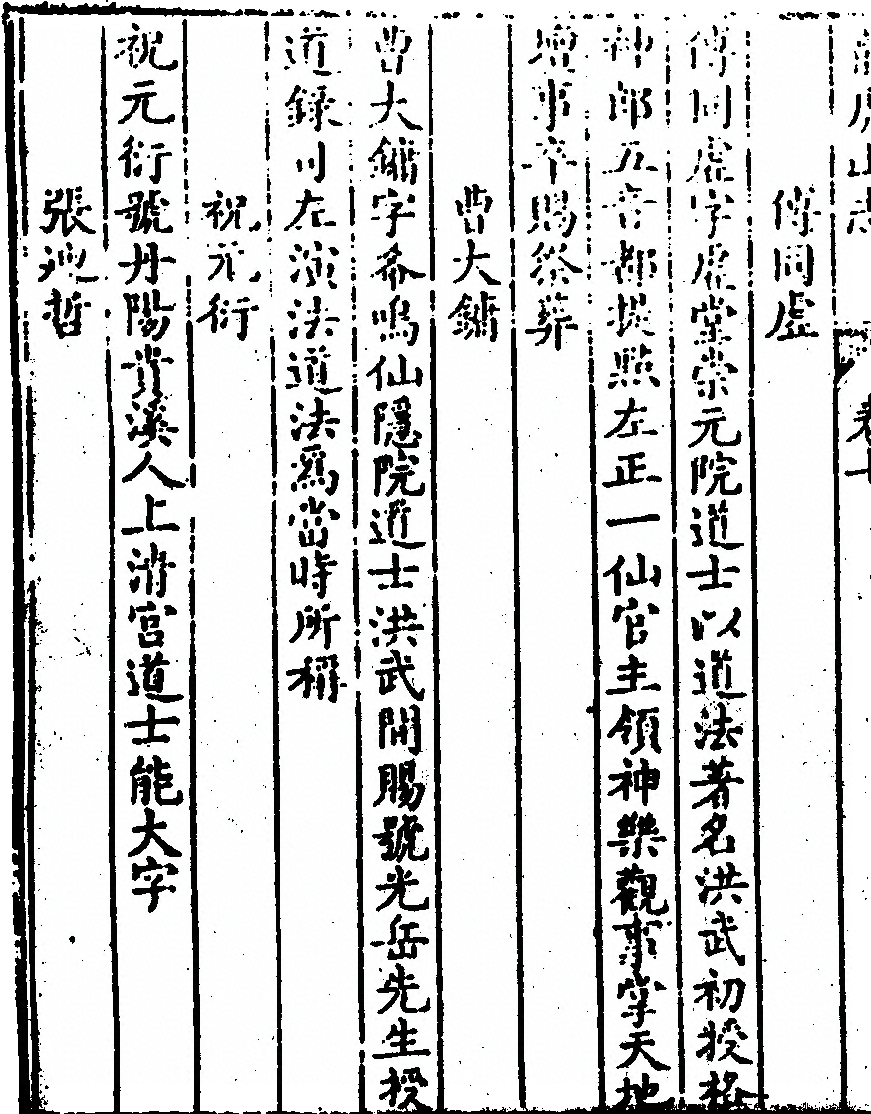 傅同虛
傅同虛字虛堂崇元院道士以道法著名洪武初授格
神郎五音都提點左正一仙官主領神樂觀事掌天地
壇事卒賜祭葬
曹大鏞
曹大鏞字希鳴仙隱院道士洪武間賜號光岳先生授
道錄司左演法道法爲當時所稱
祝元衍
祝元衍號丹陽貴溪人上清宮道士能大字
張迪哲